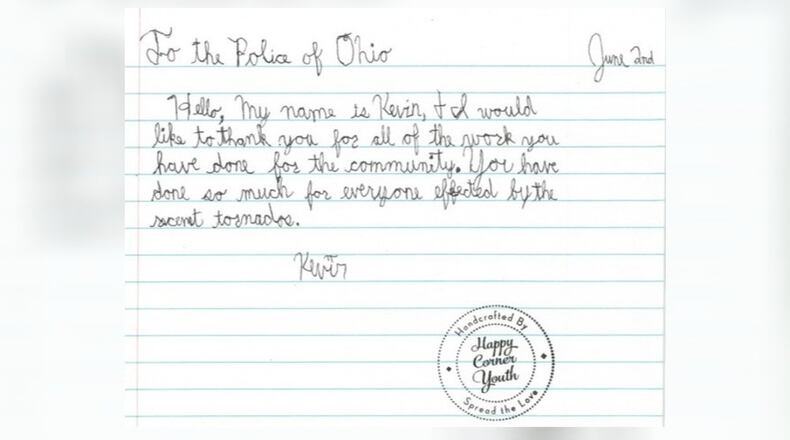 To the Police of Ohio
June 2nd
Hello, My name is Kevin, & I would
like to thank you for all of the work you
have done for the community. You have
done so much for everyone effected by the
recent tornados.
Kevin
Handcrafted By
Happy
Corner
Youth
Spread the Love